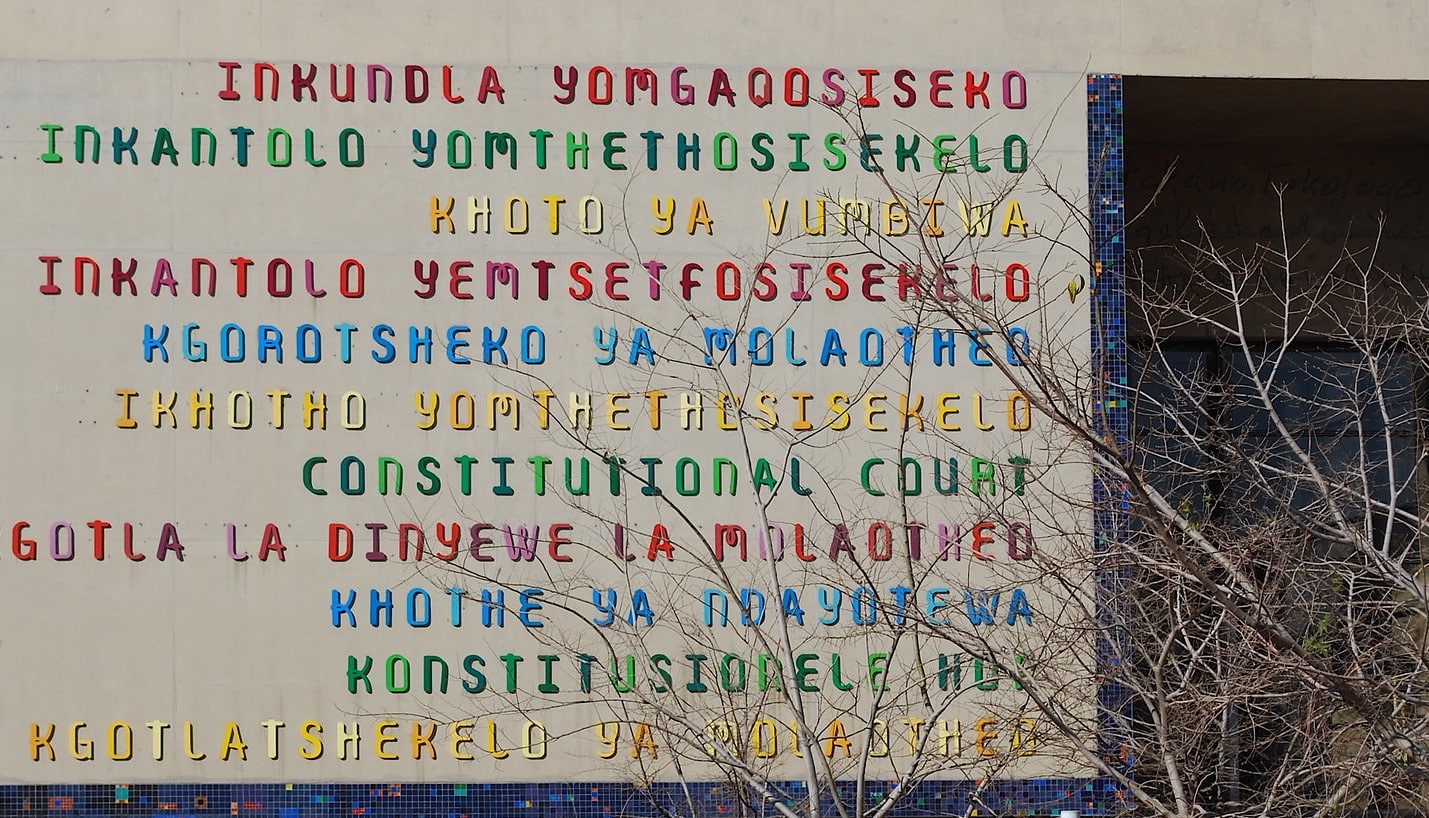 INKUNDLA YOMGAQOSISEKO
INKANTOLO YOMTHETHOSISEKELO
KHOTO YA VUMBIWA
INKANTOLO YEMTSETFOSISEKELO
KGOROTSHEKO YA MOLAOTHEO
IKHOTHO YOMTHETHOSISEKELO
CONSTITUTIONAL COURT
GOTLA LA DINYEWE LA MOLAOTHEO
KHOTHE YA NDAYOTEWA
KONSTITUSIONELE HOF
KGOTLATSHEKELO YA MOLAOTHEO